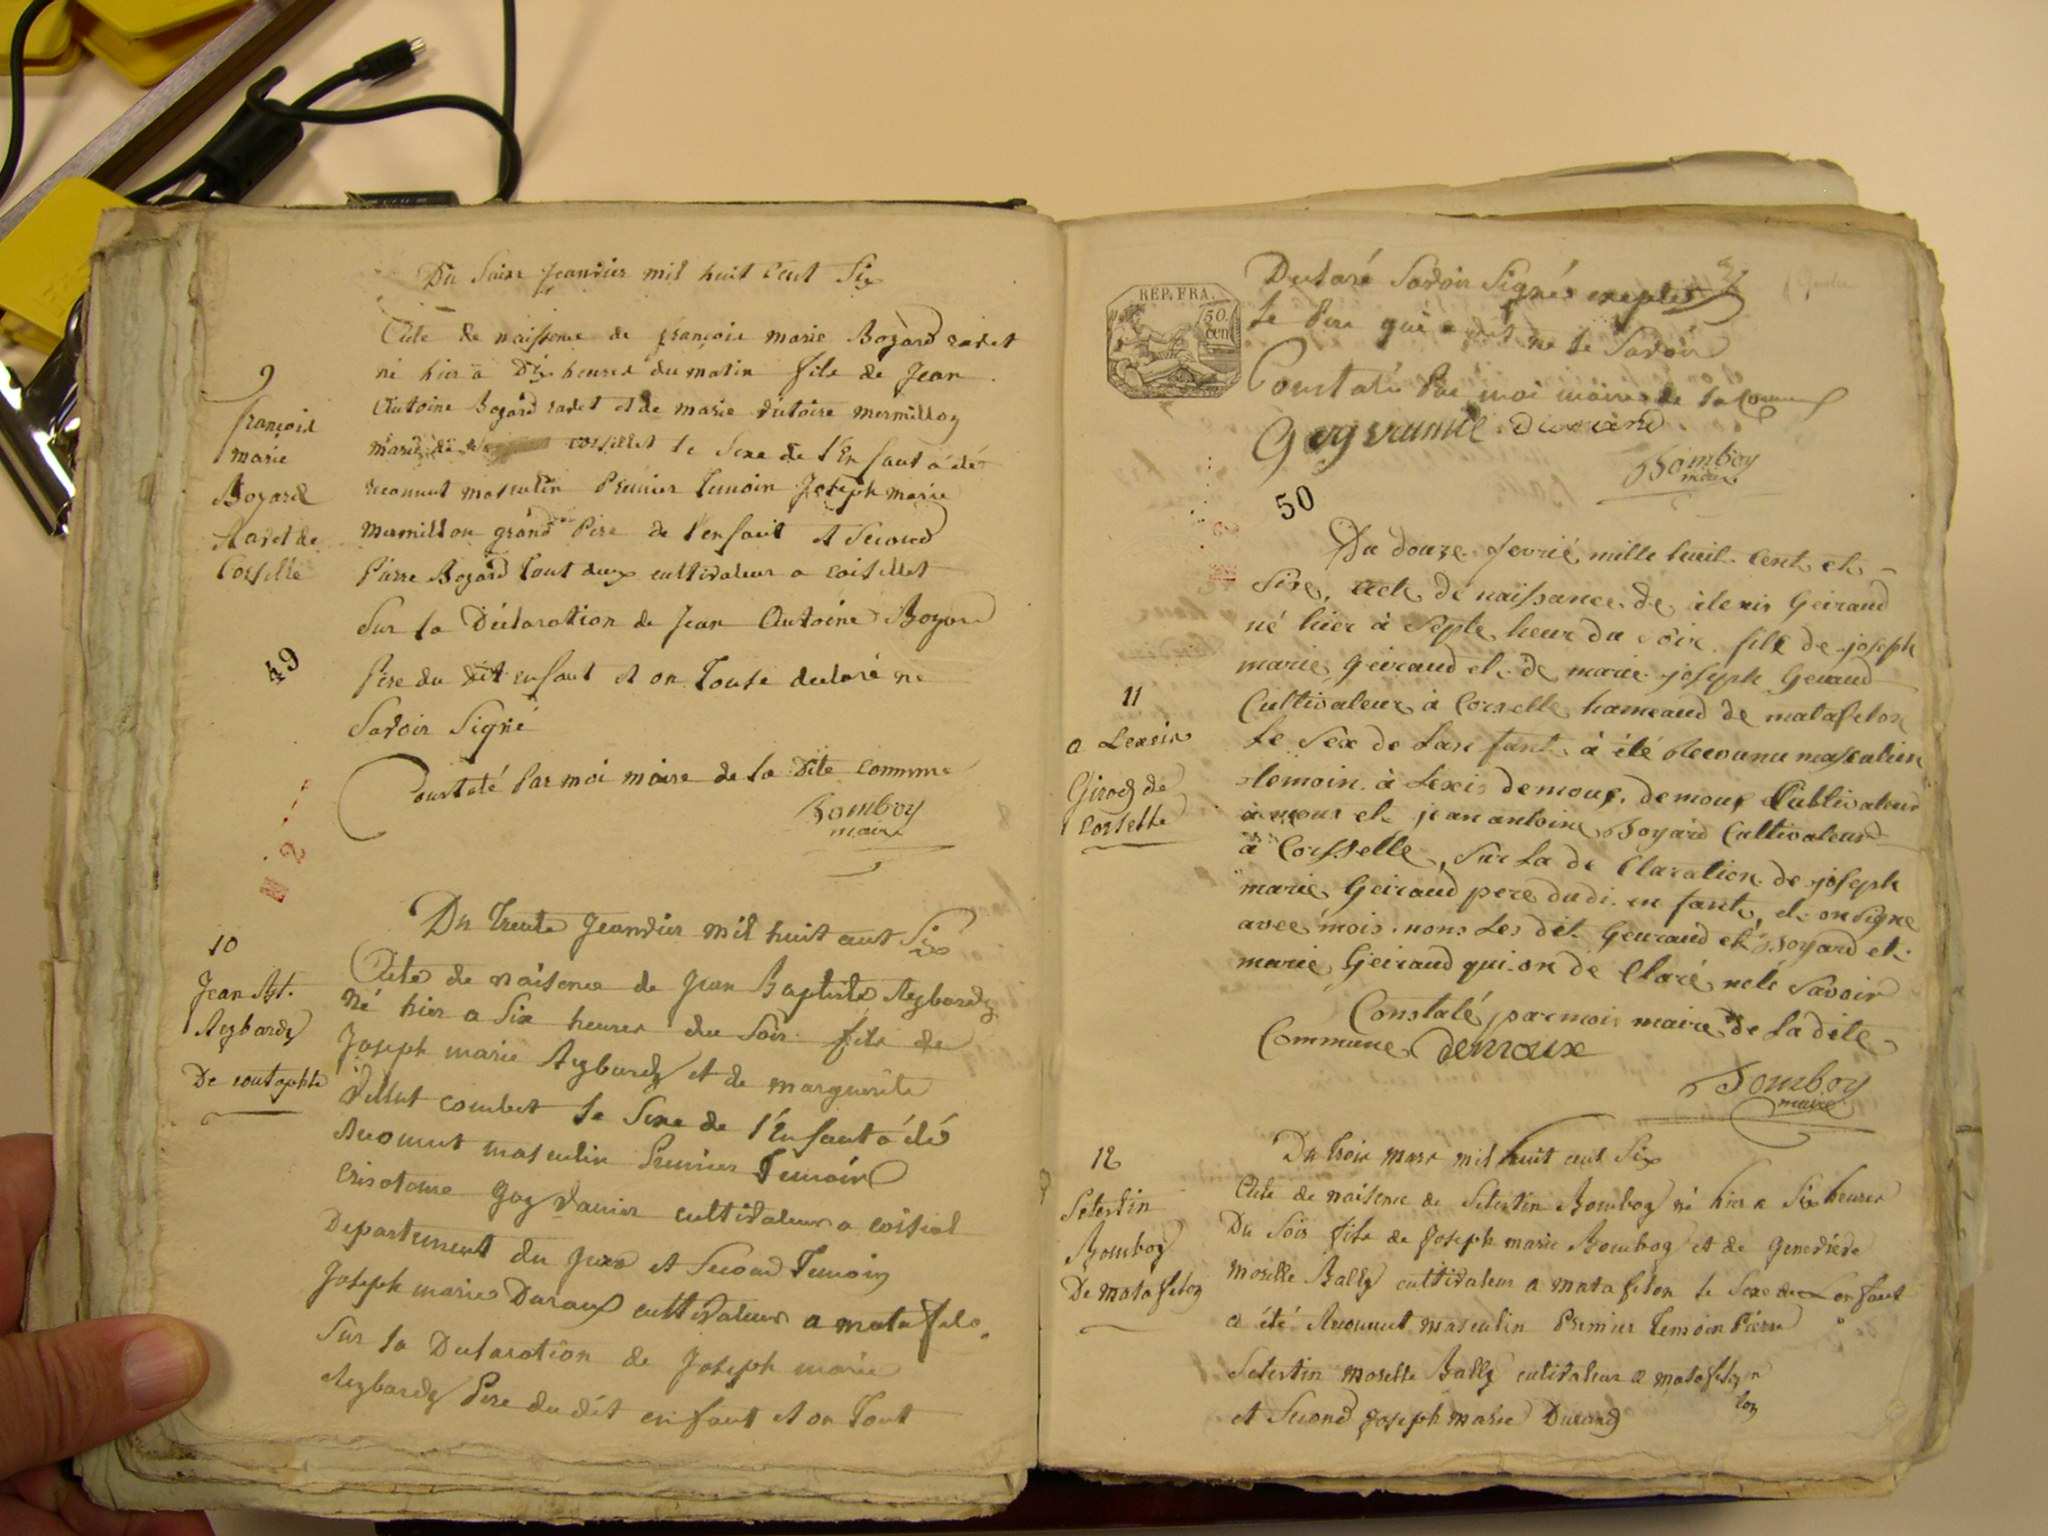 Du Saixe Jeanvier mil huit Cent Six
Acte de naissence de françois marie Bogard radet
né hier a Dix heures du matin fils de Jean
9
Antoine Bogard radet et de marie mermillon
françois
marie
Bogard
Radet de
Corsille
coisillet le Sexe de l'Enfant a été
reconnut masculin Premier Temoin Joseph marie
mermillon grand Pere de l'enfant et Second
Pierre Bogard Tout deux cultivateur a coisillet
Sur la Déclaration de Jean Antoine Bogard
49
Pere du dit enfant et on Touse declaré ne
Savoir Signé
Constaté Par moi maire de la Dite commune
Bomboy
maire
Du Trente Jeanvier mil huit cent Six
10
Jean Bpt.
Reybard
De
Acte de naisence de Jean Baptiste Reybard
Né hier a Six heures du Soir fils de
Joseph marie Reybard et de marguerite
combet le Sexe de l'Enfant a été
Reconnut masculin Premier Temoin
Crisotome Goy cultivateur a coisial
Departement du Jura et Second Temoin
Joseph marie Duraux cultivateur a matafelo.
Sur la Declaration de Joseph marie
Reybard Pere du dit enfant et on Tout
REP. FRA.
50
cent
Declaré Savoir Signér exepter
le Pere qui a dit ne le Savoir
Constaté Par moi maire de la Commune
Bomboy
maire
50
Du douze fevrié mille hueil cent et
Sixe, acte de naissance de Geiraud
né hier à Septe heur du Soir fils de joseph
marie geiraud et de marie joseph Geuraud
Cultivateur à Corselle hameaud de matafelon
11
a Lexsis
Girod de
Corselle
Le Sex de Lans fant à été Reconnu masculien
temoin à Lexis demoux, demoux Cultivateur
à mous et jean antoine Boyard Cultivateur
à Corsselle, Sur La de Claration de joseph
marie Geiraud pere du di en fant, et on Signe
avec mois nons Les dit Geuraud et Boyard et
marie Geiraud qui on de Claré ne le Savoir
Constalé par mois maire de La dite
Commune demoux
Bomboy
maire
Du Trois mars mil huit cent Six
12
Selestin
Bomboy
De matafelon
Acte de naisence de Selestin Bomboy né hier a Six heures
Du Soir fils de Joseph marie Bomboy et de Genevieve
morelle Bally cultivateur a matafelon le Sexe de Lenfant
a été Reconnut masculin Premier Temoin Pierre
Selestin morelle Bally cultivateur a matafelon
lon
et Second Joseph marie Durand